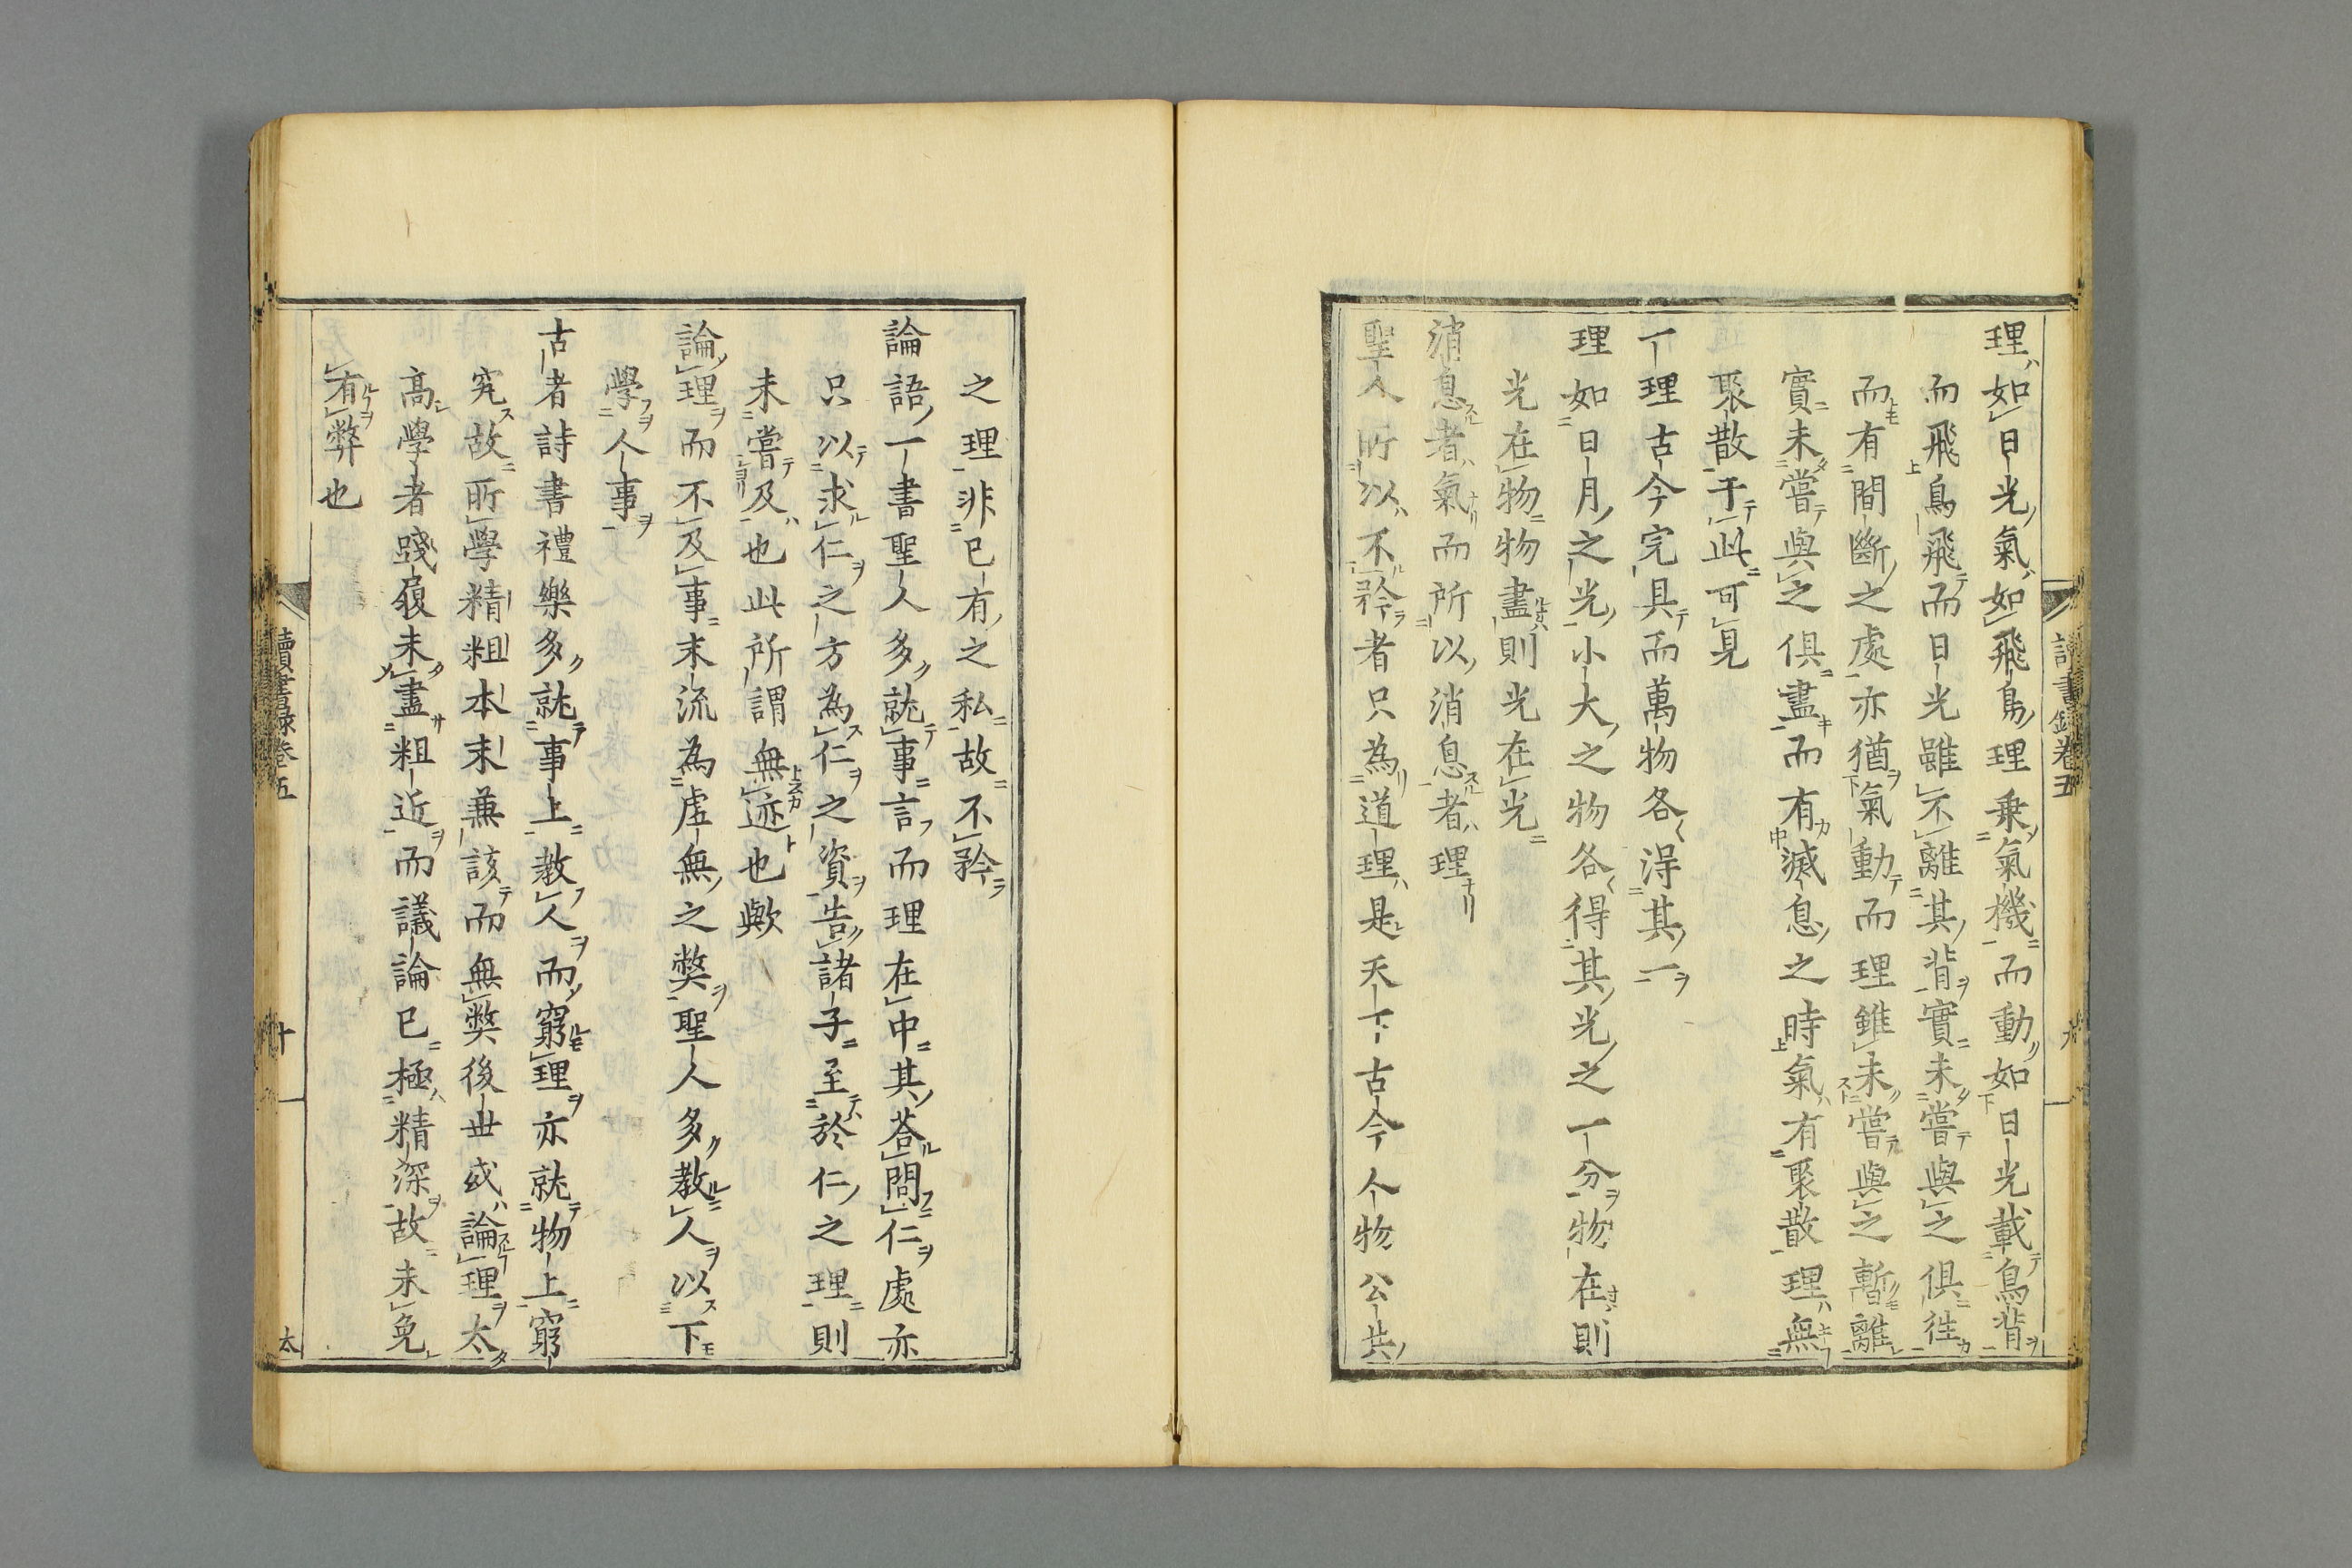 理如日光氣如飛鳥理乗氣機而動如日光載鳥背
而飛鳥飛而日光雖不離其背實未嘗與之俱徃
而有間斷之處亦猶氣動而理雖未嘗與之暫離
實未嘗與之俱盡而有滅息之時氣有聚散理無
聚散于此可見
一理古今完具而萬物各得其一
理如日月之光小大之物各得其光之一分物在則
光在物物盡則光在光
消息者氣而所以消息者理
聖人所以不矜者只為道理是天下古今人物公共
之理非已有之私故不矜
論語一書聖人多就事言而理在中其荅問仁處亦
只以求仁之方為仁之資告諸子至於仁之理則
未嘗及也此所謂無迹也歟
論理而不及事末流為虚無之獘聖人多教人以下
學人事
古者詩書禮樂多就事上教人而窮理亦就物上窮
究故所學精粗本末兼該而無獘後世或論理太
高學者踐履未盡粗近而議論已極精深故未免
有弊也
讀書録卷五
九
讀書録卷五
十
太